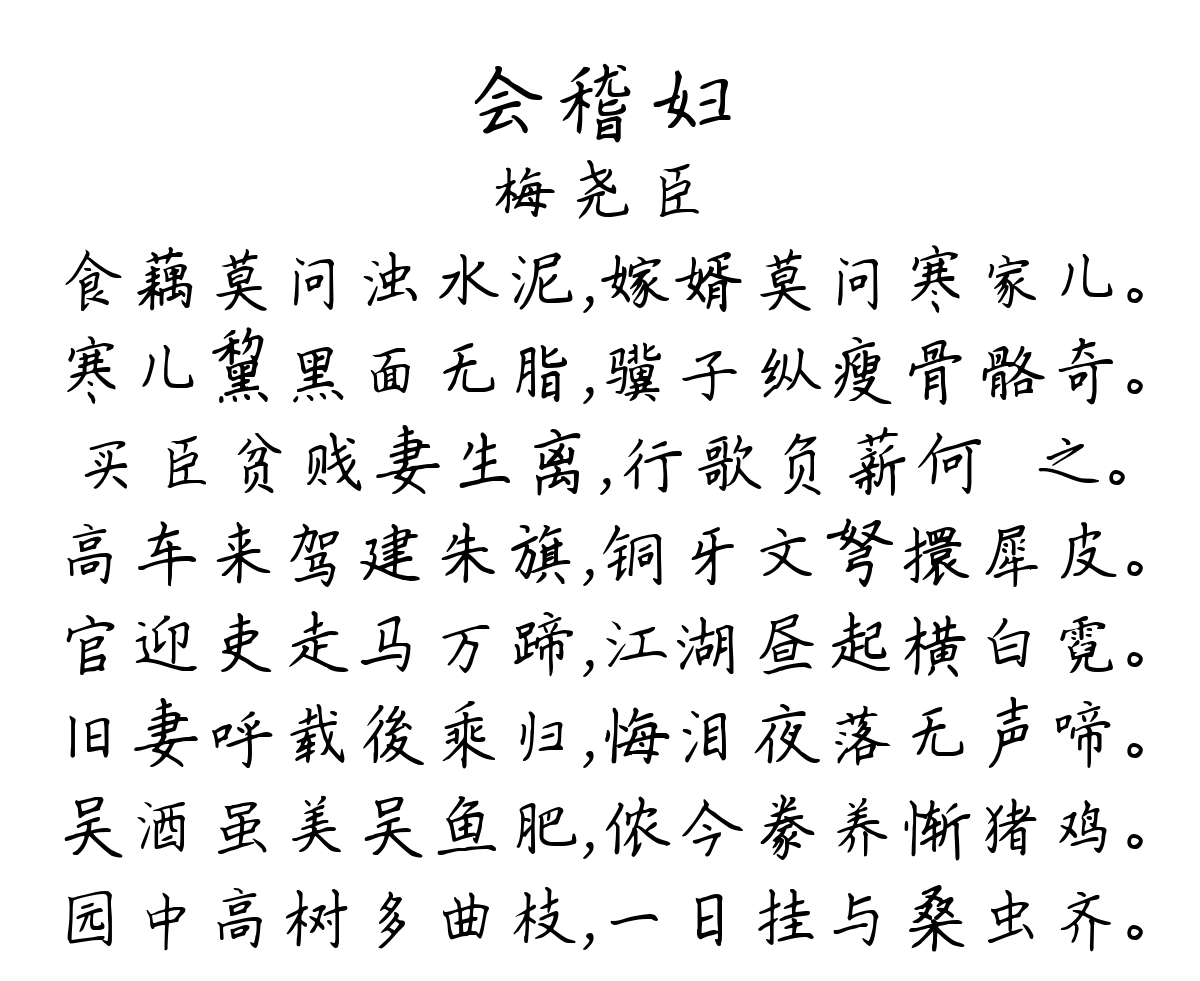 会稽妇
梅尧臣
食藕莫问浊水泥,嫁婿莫问寒家儿。
寒儿黧黑面无脂,骥子纵瘦骨骼奇。
买臣贫贱妻生离,行歌负薪何 之。
高车来驾建朱旗,铜牙文弩擐犀皮。
官迎吏走马万蹄,江湖昼起横白霓。
旧妻呼载後乘归,悔泪夜落无声啼。
吴酒虽美吴鱼肥,侬今豢养惭猪鸡。
园中高树多曲枝,一日挂与桑虫齐。